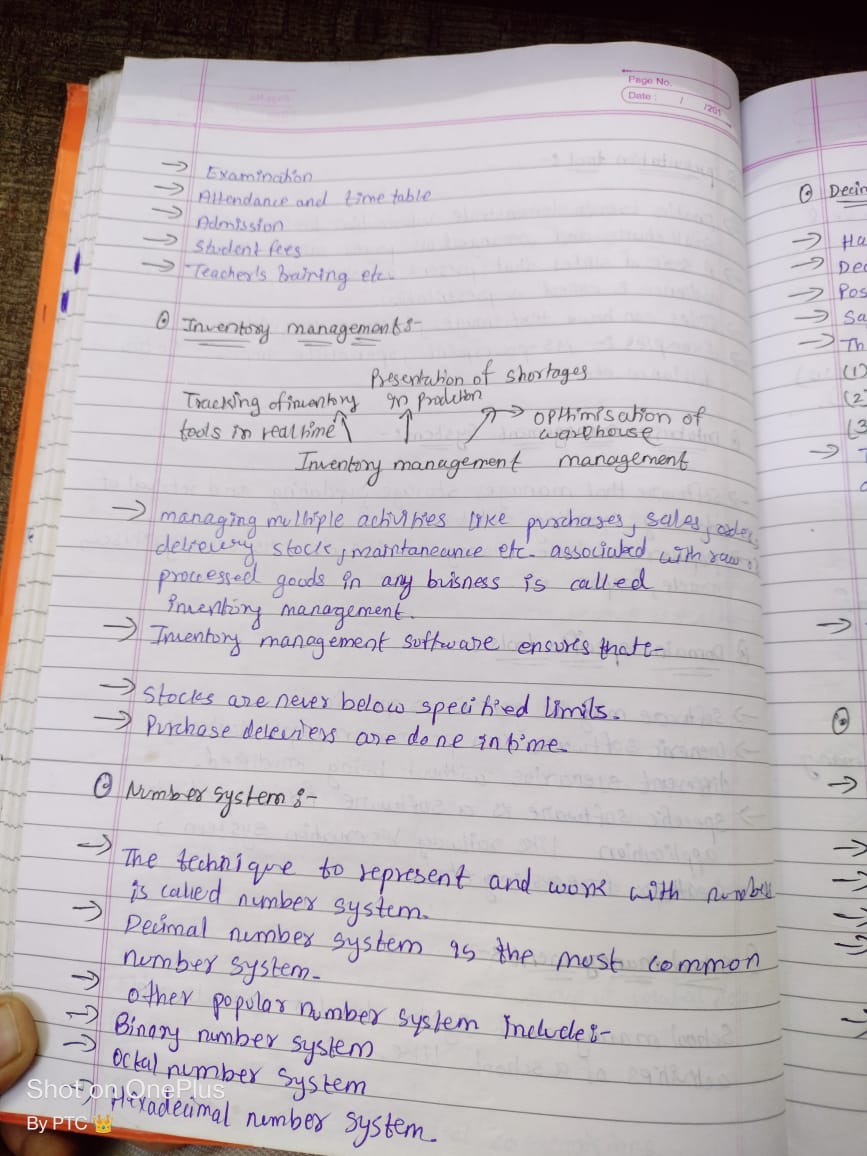 Page No.
Date : / /201
→ Examination
→ Attendance and time table
→ Admission
→ Student fees
→ Teacher's training etc.
⊙ Inventory managements:-
Presentation of shortages
Tracking of inventory in prodction
tools in real time → opthimisation of
warehouse
Inventory management management
→ managing multiple activities like purchases, sales, order,
delivery stock, maintaneance etc. associated with raw
processed goods in any buisness is called
inventory management.
→ Inventory management software ensures that:-
→ Stocks are never below specified limits.
→ Purchase deleviers are done in time.
⊙ Number system :-
→ The technique to represent and work with number
is called number system.
→ Decimal number system is the most common
number system.
→ other popular number system include:-
→ Binary number system
→ Octal number system
→ Hexadecimal number system.
⊙ Decim
→ Ha
→ Dec
→ Pos
→ Sa
→ Th
(1)
(2)
(3
Shot on OnePlus
By PTC 👑